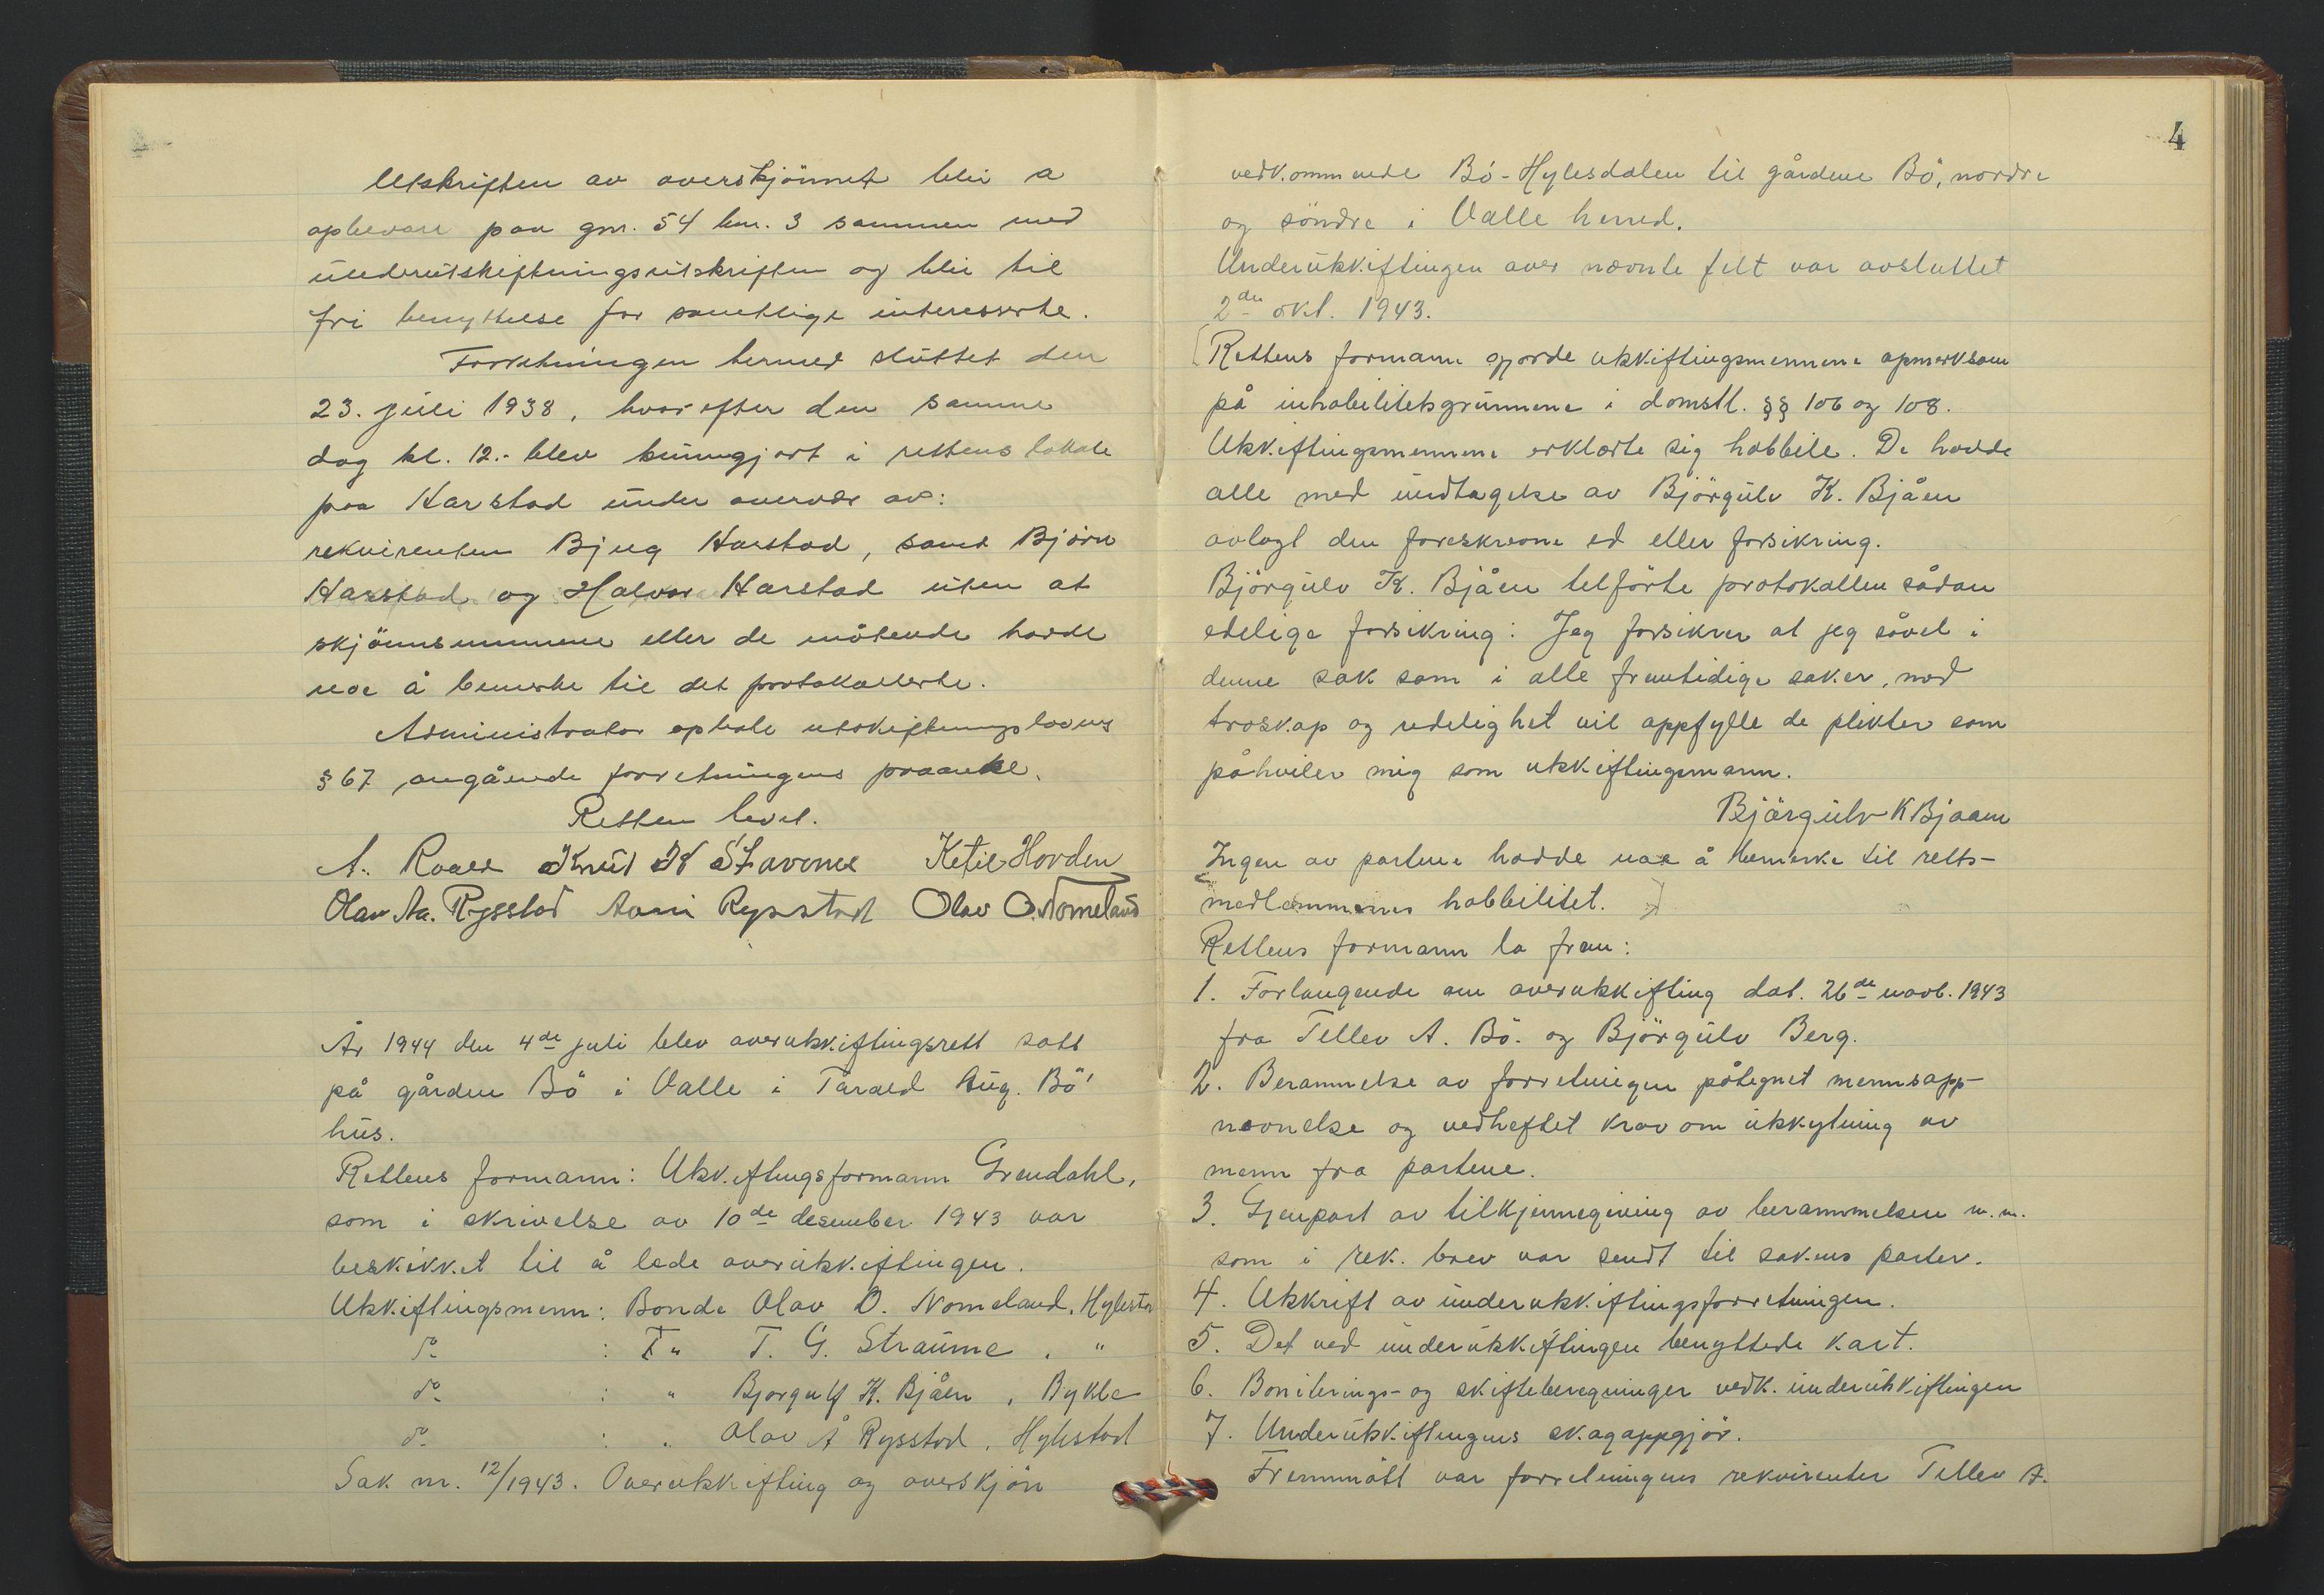 Utskriften av overskjönnet blir a
opbevare paa gnr. 54 bnr. 3 sammen med
underutskiftningsutskriften og blir til
fri benyttelse for samtlige interesserte.
Forretningen hermed sluttet den
23. juli 1938, hvorefter den samme
dag kl. 12.- blev kunngjort i rettens lokale
paa Harstad under overvær av:
rekvirenten Bjug Harstad, samt Björn
Harstad og Halvor Harstad uten at
skjönnsmennene eller de mötende hadde
noe å bemerke til det protokollerte.
Administrator oplæste utskiftningslovens
§ 67 angående forretningens paaanke.
Retten hevet.
A. Roald Knut K Straume Ketil Hovden
Olav Aa. Rysstad Aani Rysstad Olav O. Nomeland
År 1944 den 4de juli blev overutskiftingsrett satt
på gården Bö i Valle i Tarald Aug. Bö'
hus.
Rettens formann: Utskiftingsformann Grendahl,
som i skrivelse av 10de desember 1943 var
beskikket til å lede overutskiftingen.
Utskiftingsmenn: Bonde Olav O. Nomeland, Hylestad
do : " T. G. Straume , "
do : " Bjorgulf K. Bjåen , Bykle
do : " Olav Å Rysstad , Hylestad
Sak nr. 12/1943. Overutskifting og overskjön
4
vedkommende Bö-Hylesdalen til gårdene Bö, nordre
og söndre i Valle herred.
Underutskiftingen over nævnte felt var avsluttet
2den okt. 1943.
Rettens formann gjorde utskiftingsmennene opmerksom
på inhabilitetsgrunnene i domstl. §§ 106 og 108.
Utskiftingsmennene erklærte sig habbile. De hadde
alle med undtagelse av Björgulv K. Bjåen
avlagt den foreskrevne ed eller forsikring.
Björgulv K. Bjåen tilförte protokollen sådan
edelige forsikring: Jeg forsikrer at jeg såvel i
denne sak som i alle fremtidige saker, med
troskap og redelighet vil oppfylle de plikter som
påhviler mig som utskiftingsmann.
Björgulv K Bjaaen
Ingen av partene hadde noe å bemerke til retts-
medlemmenes habbilitet.
Rettens formann la fram:
1. Forlangende om overutskifting dat. 26de novb. 1943
fra Tellev A. Bö. og Björgulv Berg.
2. Berammelse av forretningen påtegnet mennsopp-
nevnelse og vedheftet krav om utskytning av
menn fra partene.
3. Gjenpart av tilkjennegivning av berammelsen m.m.
som i rek. brev var sendt til sakens parter.
4. Utskrift av underutskiftingsforretningen.
5. Det ved underutskiftingen benyttede kart.
6. Boniterings- og skifteberegninger vedk. underutskiftingen
7. Underutskiftingens skogoppgjör.
Fremmött var forretningens rekvirenter Tellev A.